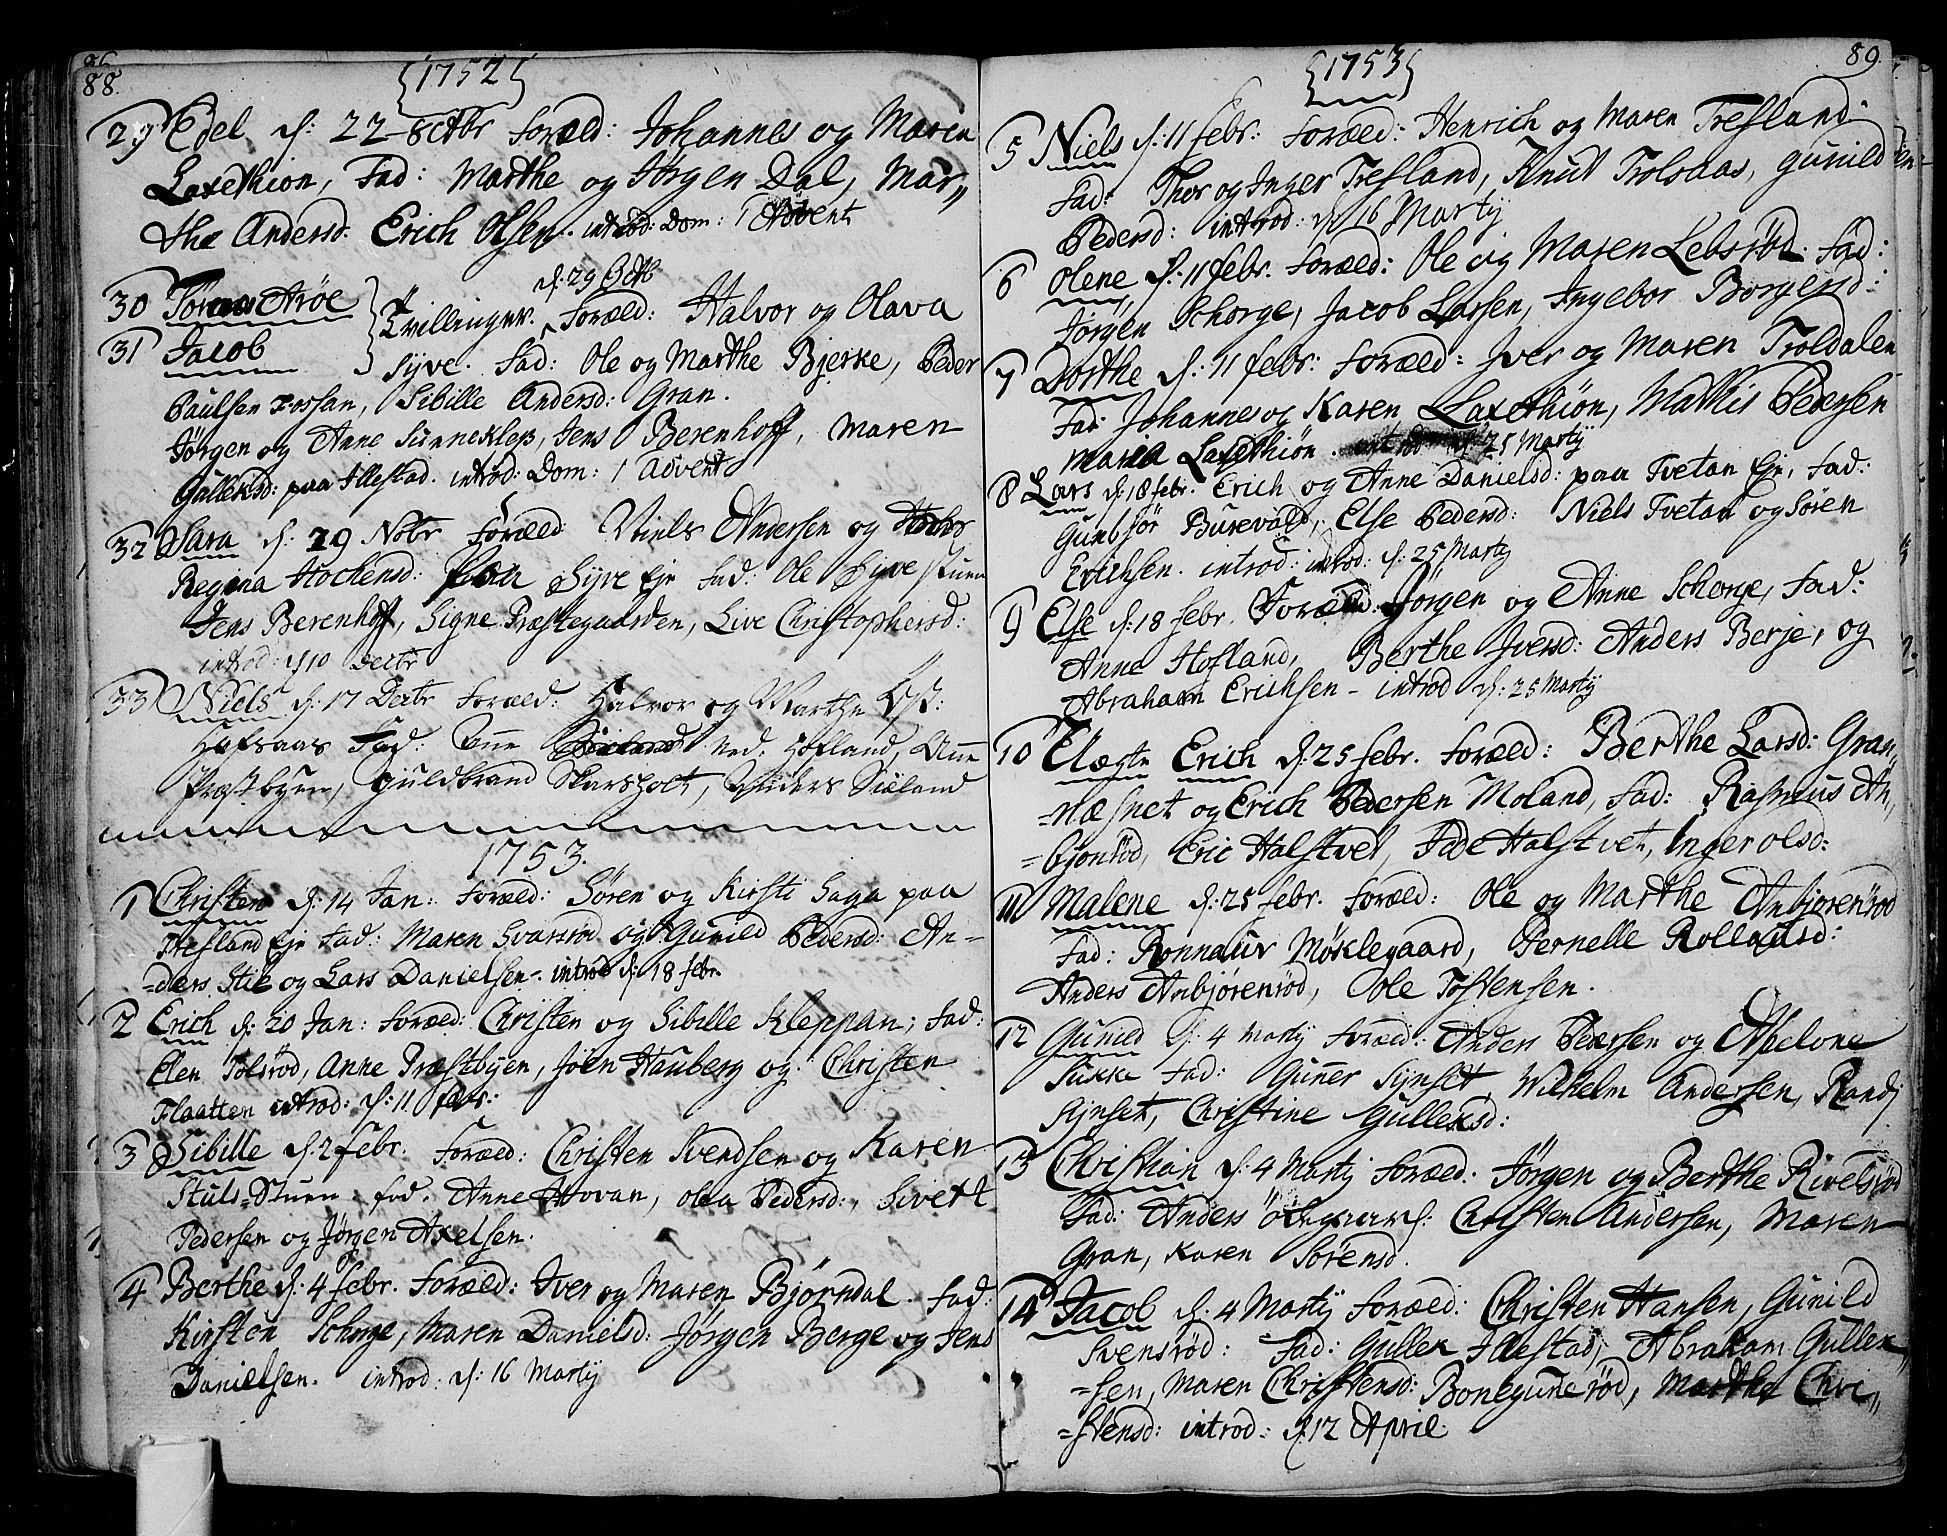 88.
1752
29 Edel d: 22 8ctbr foræld: Johannes og Maren
Laxethion, Fad: Marthe og Jørgen Dal, Mar„
the Andersd. Erich Olsen. introd: Dom: 1 Advent
30 Aröe
d: 29 Octb
31 Jacob
Tvillinger. Foræld: Halvor og Olava
Syve. Fad: Ole og Marthe Bjerke, Peder
Paulsen Fossan, Sibille Andersd: Gran.
Jørgen og Anne Sunneklep, Jens Berenhoff, Maren
Gulleksd: paa Illestad. introd: Dom: 1 Advent
32 Sara d: 29 Nobr Foræld Niels Andersen og
Regina Hochensd: Syve Eje Fad: Ole Syve stuen
Jens Berenhoff, Signe Præstegaarden, Live Christophersd:
introd: d 10 Decbr
33 Niels d: 17 Decbr Foræld: Halvor og Marthe
Hofsaas Fad: ned. Hofland, Anne
Præstbyen, Guldbrand Skarsholt, Anders Siøland
1753.
1 Christen d: 14 Jan: Foræld: Sören og Kirsti Saga paa
Trefland Eje Fad: Maren Svarsrød og Gunild Pedersd: An=
=ders Stie og Lars Danielsen. introd d: 18 febr.
2 Erich d: 20 Jan: Foræld: Christen og Sibille Kleppan; Fad:
Elen Tolsrød, Anne Præstbyen, Joen Hauberg og Christen
Flaatten introd: d: 11 febr:
3 Sibille d: 2 febr. Foræld: Christen Svendsen og Karen
Stuls=Stuen. fad. Anne Hovan, Olea Pedersd:, Sivert
Pedersen og Jørgen Axelsen.
4 Berthe d: 4 febr. Foræld: Iver og Maren Bjørndal. Fad:
Kirsten Schorge, Maren Danielsd: Jørgen Berge og Jens
Danielsen. introd: d: 16 Martij
89.
1753
5 Niels d: 11 febr: foræld: Henrich og Maren Trefland.
Fad: Thor og Inger Trefland, Knut Trolsaas, Gunild
Pedersd: introd: d: 16 Martij
6 Olene d: 11 febr. foræld: Ole og Maren Lebsröd. Fad:
Jörgen Schorge, Jacob Larsen, Ingebor Borgersd:
7 Dorthe d: 11 febr: foræld: Iver og Maren Troldalen
Fad: Johannes og Karen Laxethiön, Mathis Pedersen
Maria Laxethiön. introd d: 25 Martij
8 Lars d: 18 febr. Erich og Anne Danielsd: paa Tvetan Eje, Fad:
Gunbjör Burevald, Else Pedersd: Niels Tvetan og Sören
Erichsen. introd: introd: d: 25 Martij
9 Else d: 18 febr. Foræld: Jörgen og Anne Schorge, Fad:
Anne Hofland, Berthe Iversd: Anders Berje, og
Abraham Erichsen - introd d: 25 Martij
10 Uægte Erich d: 25 febr. foræld: Berthe Larsd: Gran„
=næsnet og Erich Pedersen Moland, Fad: Rasmus An„
=bjonröd, Eric Halstvet, Halstvet, Inger Olsd:
11 Malene d: 25 febr. foræld: Ole og Marthe Anbjörenröd
Fad: Ronnauv Mörklegaard, Pernelle Rollaugsd:
Anders Anbjörenröd, Ole Tostensen.
12 Gunild d: 4 Martij foræld: Anders Pedersen og Apelone
Sukke Fad: Guner Synset, Wilhelm Andersen, Randj
Synset, Christine Gulleksd:
13 Christian d: 4 Martij foræld: Jörgen og Berthe Rivelsröd
Fad: Anders Christen Andersen, Maren
Gran, Karen Sörensd.
14 Jacob d: 4 Martij foræld: Christen Hansen, Gunild
Svensröd: Fad: Gullek Illestad, Abraham Gullek„
=sen, Maren Christensd: Boneguneröd, Marthe Chri„
=stensd: introd: d. 12 April.